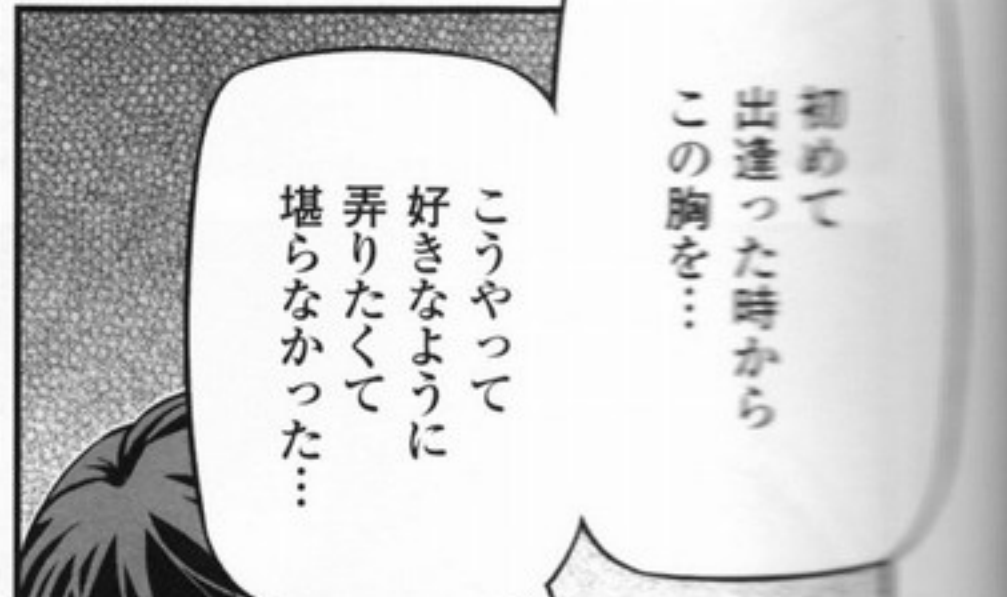 初めて
出逢った時から
この胸を…
こうやって
好きなように
弄りたくて
堪らなかった…